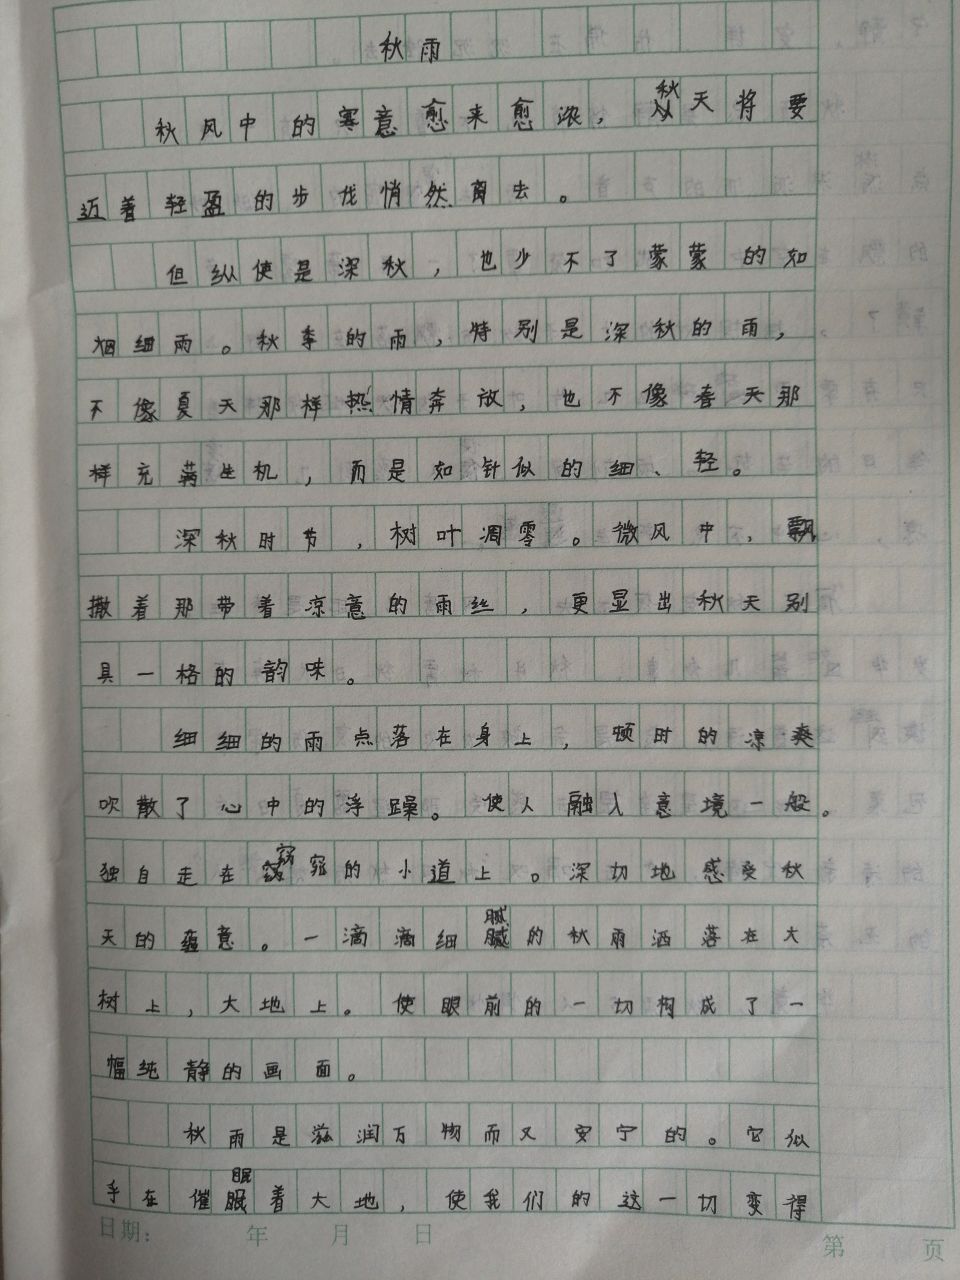 秋雨
秋风中的寒意愈来愈浓，秋天将要
迈着轻盈的步伐悄然离去。
但纵使是深秋，也少不了蒙蒙的如
烟细雨。秋季的雨，特别是深秋的雨，
不像夏天那样热情奔放，也不像春天那
样充满生机，而是如针似的细、轻。
深秋时节，树叶凋零。微风中，飘
撒着那带着凉意的雨丝，更显出秋天别
具一格的韵味。
细细的雨点落在身上，顿时的凉爽
吹散了心中的浮躁。使人融入意境一般。
独自走在窈窕的小道上。深切地感受秋
天的蕴意。一滴滴细腻的秋雨洒落在大
树上，大地上。使眼前的一切构成了一
幅纯静的画面。
秋雨是滋润万物而又安宁的。它似
乎在催眠着大地，使我们的这一切变得
日期： 年 月 日 第 页